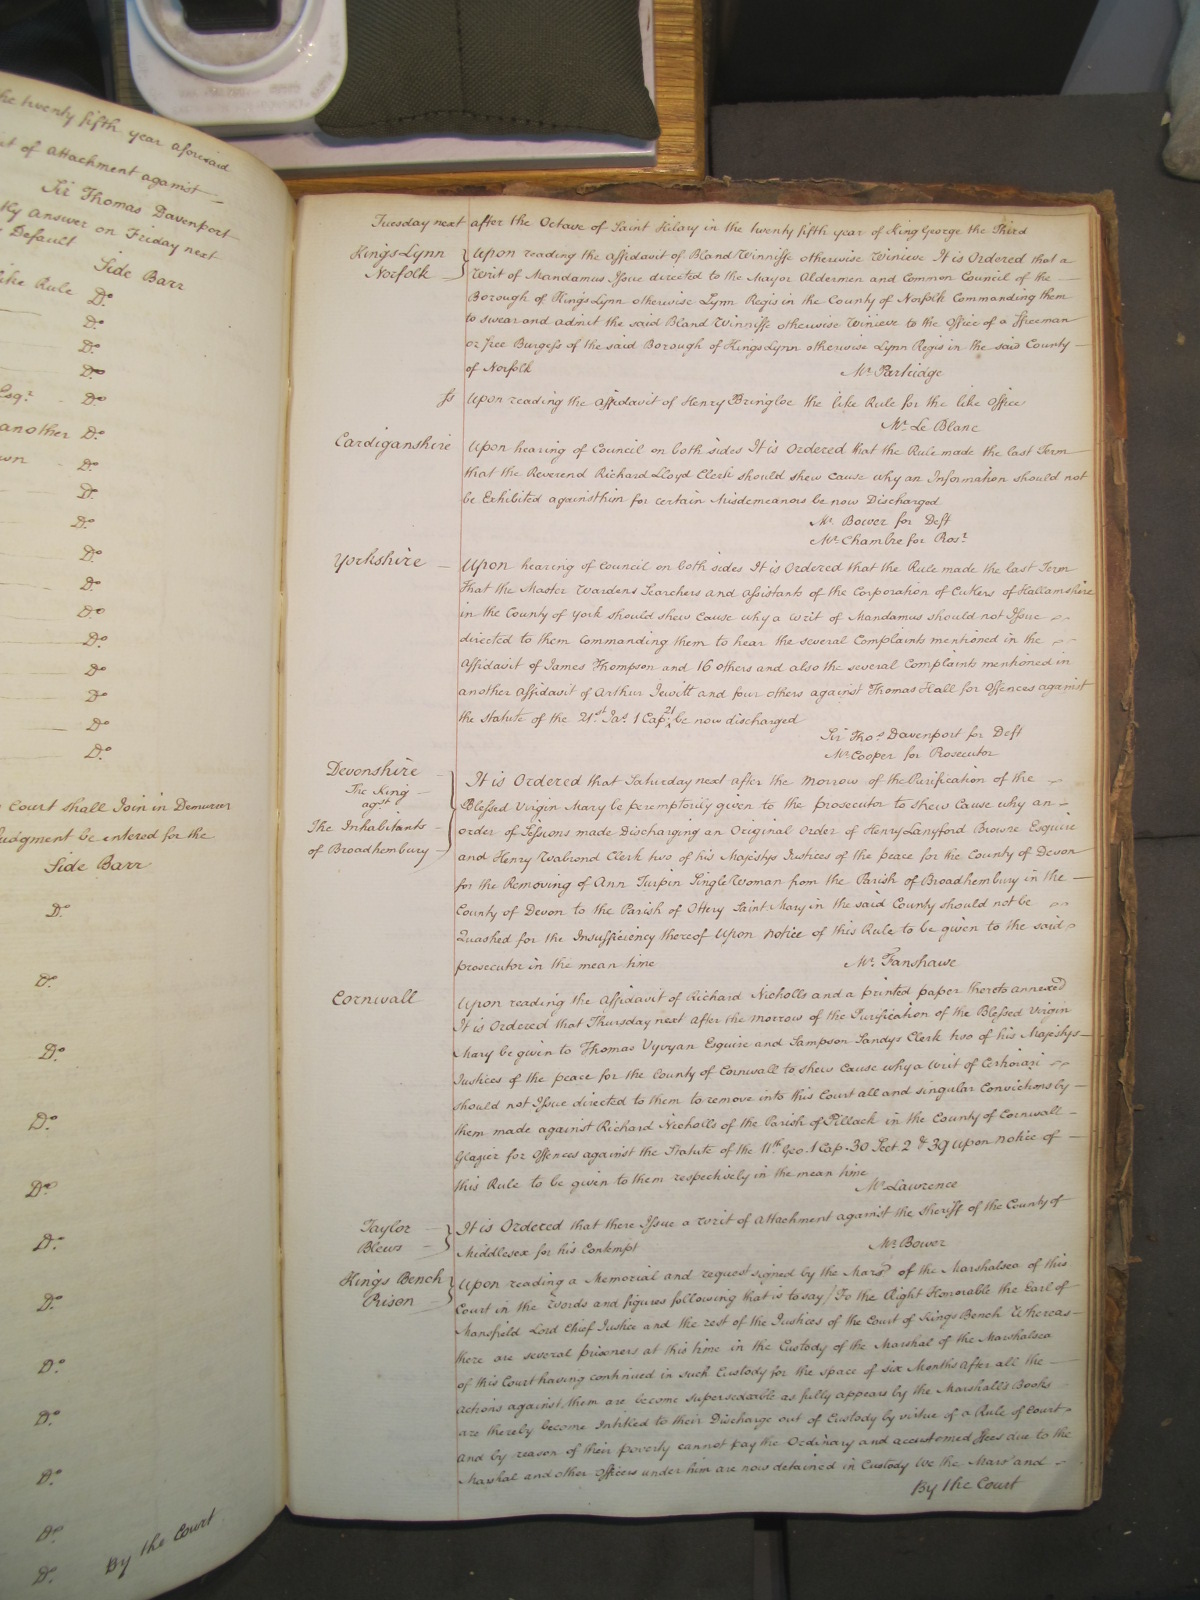 the twenty fifth year aforesaid
of Attachment against
Sir Thomas Davenport
answer on Friday next
Default
Side Barr
like Rule Do.
Do.
Do.
Do.
Esqr. Do.
another Do.
Do.
Do.
Do.
Do.
Do.
Do.
Do.
Do.
Do.
Do.
Do.
Court shall Join in Demurrer
Judgment be entered for the
Side Barr
Do.
Do.
Do.
Do.
Do.
Do.
Do.
Do.
Do.
Do.
Do.
Do.
By the Court
Tuesday next after the Octave of Saint Hilary in the twenty fifth year of King George the Third
Kings Lynn
Norfolk
Upon reading the Affidavit of Bland Winniffe otherwise Winieve It is Ordered that a
Writ of Mandamus Issue directed to the Mayor Aldermen and Common Council of the
Borough of Kings Lynn otherwise Lynn Regis in the County of Norfolk Commanding them
to swear and admit the said Bland Winniffe otherwise Winieve to the Office of a Freeman
or free Burgess of the said Borough of Kings Lynn otherwise Lynn Regis in the said County
of Norfolk Mr. Partridge
ss Upon reading the Affidavit of Henry Bringloe the like Rule for the like Office
Mr. Le Blanc
Cardiganshire Upon hearing of Council on both sides It is Ordered that the Rule made the last Term
that the Reverend Richard Lloyd Clerk should shew cause why an Information should not
be Exhibited against him for certain Misdemeanors be now Discharged
Mr. Bower for Deft
Mr. Chambre for Prosr.
Yorkshire Upon hearing of Council on both sides It is Ordered that the Rule made the last Term
That the Master Wardens Searchers and Assistants of the Corporation of Cutlers of Hallamshire
in the County of York should shew cause why a writ of Mandamus should not Issue
directed to them Commanding them to hear the several Complaints mentioned in the
Affidavit of James Thompson and 16 others and also the several Complaints mentioned in
another Affidavit of Arthur Jewitt and four others against Thomas Hall for Offences against
the Statute of the 21st. Jas. 1 Cap. 21 be now discharged
Sir Thos. Davenport for Deft
Mr. Cooper for Prosecutor
Devonshire
The King
agst
The Inhabitants
of Broadhembury
It is Ordered that Saturday next after the morrow of the Purification of the
Blessed Virgin Mary be peremptorily given to the prosecutor to shew Cause why an
order of Sessions made Discharging an Original Order of Henry Langford Browne Esquire
and Henry Walrond Clerk two of his Majestys Justices of the peace for the County of Devon
for the Removing of Ann Turpin Single Woman from the Parish of Broadhembury in the
County of Devon to the Parish of Ottery Saint Mary in the said County should not be
Quashed for the Insufficiency thereof Upon notice of this Rule to be given to the said
prosecutor in the mean time Mr. Fanshawe
Cornwall Upon reading the Affidavit of Richard Nicholls and a printed paper thereto annexed
It is Ordered that Thursday next after the morrow of the Purification of the Blessed Virgin
Mary be given to Thomas Vyvyan Esquire and Sampson Sandys Clerk two of his Majestys
Justices of the peace for the County of Cornwall to shew Cause why a Writ of Certiorari
should not Issue directed to them to remove into this Court all and singular Convictions by
them made against Richard Nicholls of the Parish of Pillack in the County of Cornwall
Glazier for Offences against the Statute of the 11th. Geo. 1 Cap. 30 Sect. 2 & 39 Upon notice of
this Rule to be given to them respectively in the mean time
Mr. Lawrence
Taylor
Blews
It is Ordered that there Issue a Writ of Attachment against the Sheriff of the County of
Middlesex for his Contempt Mr. Bower
Kings Bench
Prison
Upon reading a Memorial and request signed by the Marsl of the Marshalsea of this
Court in the words and figures following that is to say / To the Right Honorable the Earl of
Mansfield Lord Chief Justice and the rest of the Justices of the Court of Kings Bench Whereas
there are several prisoners at this time in the Custody of the Marshal of the Marshalsea
of this Court having continued in such Custody for the space of six Months after all the
Actions against them are become supersedeable as fully appears by the Marshall's Books
are thereby become Intitled to their Discharge out of Custody by virtue of a Rule of Court
And by reason of their poverty cannot pay the Ordinary and accustomed ffees due to the
Marshal and other Officers under him are now detained in Custody We the Marsl and
By the Court